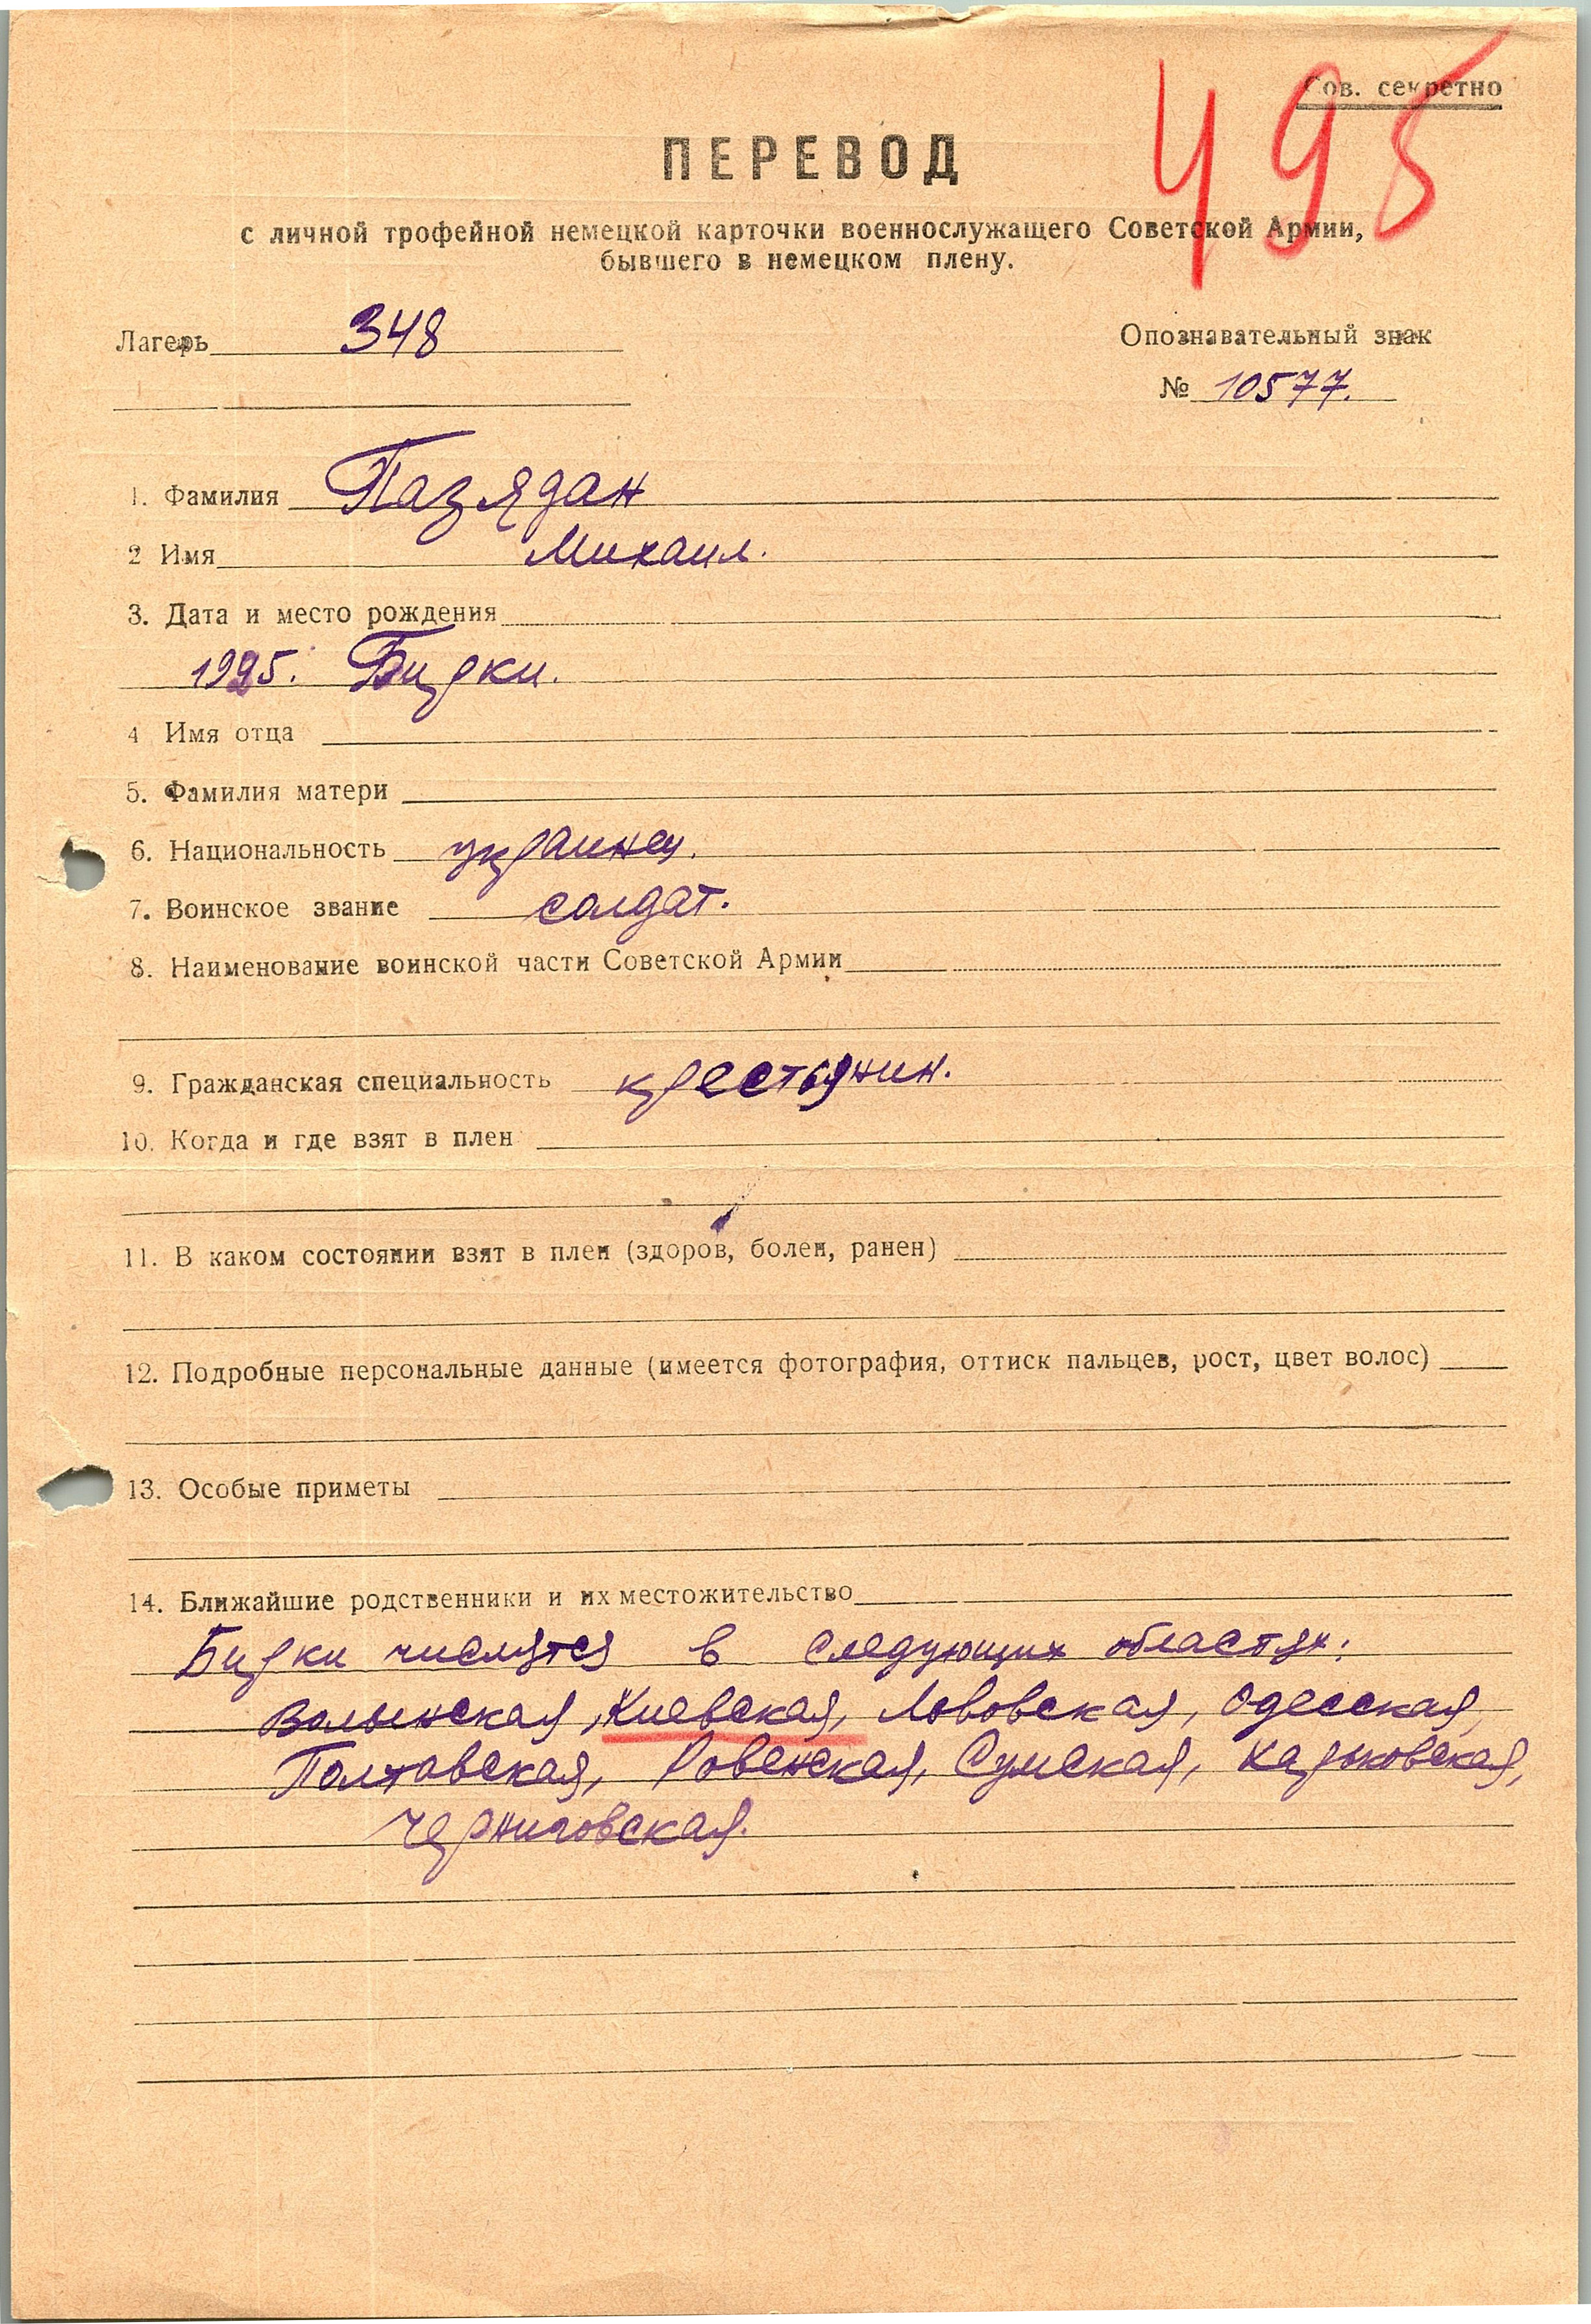 495
Сов. секретно
ПЕРЕВОД
с личной трофейной немецкой карточки военнослужащего Советской Армии,
бывшего в немецком плену.
Лагерь 348
Опознавательный знак
№ 10577.
1. Фамилия Пазядан
2 Имя Михаил.
3. Дата и место рождения
1925. Бирки.
4 Имя отца
5. Фамилия матери
6. Национальность украинец.
7. Воинское звание солдат.
8. Наименование воинской части Советской Армии
9. Гражданская специальность крестьянин.
10. Когда и где взят в плен
11. В каком состоянии взят в плен (здоров, болен, ранен)
12. Подробные персональные данные (имеется фотография, оттиск пальцев, рост, цвет волос)
13. Особые приметы
14. Ближайшие родственники и их местожительство
Бирки числятся в следующих областях:
Волынская, Киевская, Львовская, Одесская,
Полтавская, Ровенская, Сумская, Харьковская,
Черниговская.